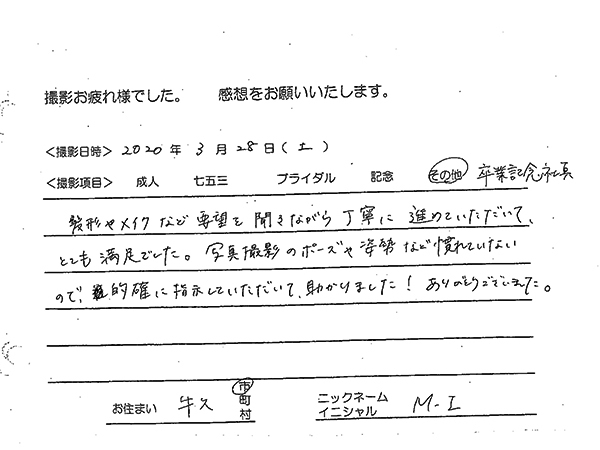 撮影お疲れ様でした。 感想をお願いいたします。
<撮影日時> 2020 年 3 月 28 日(土)
<撮影項目> 成人 七五三 ブライダル 記念 その他 卒業記念写真
髪形やメイクなど要望を聞きながら丁寧に進めていただいて、
とても満足でした。写真撮影のポーズや姿勢など慣れていない
ので、的確に指示していただいて、助かりました!ありがとうございました。
お住まい 牛久 市町村
ニックネーム
イニシャル M-I